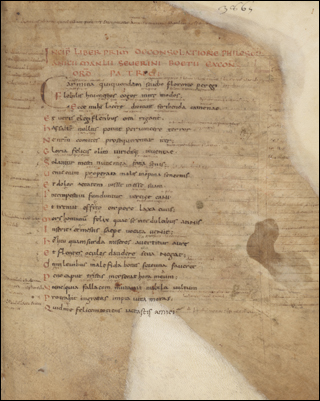 INCIP LIBER PRIM DE CONSOLATIONE PHILOSO
ANICII MANLII SEVERINI BOETII EX CON
ORD PATRICII
Carmina qui quondam studio florente peregi
Flebilis heu mestos cogor inire modos
Ecce mihi lacere dictant scribenda camenae
Et veris elegi fletibus ora rigant
Has saltem nullus potuit pervincere terror
Ne nostrum comites prosequerentur iter
Gloria felicis olim viridisque iuventae
Solantur mesti nunc mea fata senis
Venit enim properata malis inopina senectus
Et dolor aetatem iussit inesse suam
Intempestivi funduntur vertice cani
Et tremit effeto corpore laxa cutis
Mors hominum felix quae se nec dulcibus annis
Inserit et mestis saepe vocata venit
Eheu quam surda miseros avertitur aure
Et flentes oculos claudere saeva negat
Dum levibus malefida bonis fortuna faveret
Pene caput tristis merserat hora meum
Nunc quia fallacem mutavit nubila vultum
Protrahit ingratas impia vita moras
Quid me felicem iactastis amici